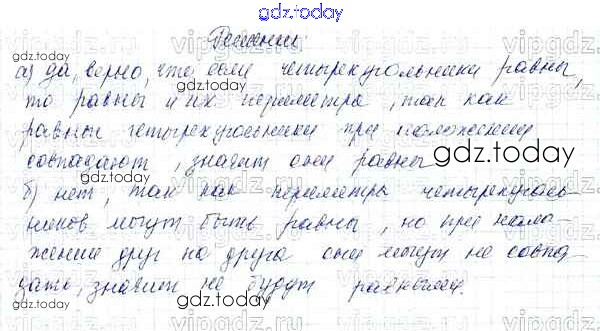 gdz.today
Решение:
а) да, верно, что если четырехугольники равны,
то равны и их периметры, так как
равны четырехугольники при наложении
совпадают, значит они равны
gdz.today
б) нет, так как периметры четырехуголь-
ников могут быть равны, но при нало-
жении друг на друга они могут не совпа-
дать, значит не будут равными.
gdz.today